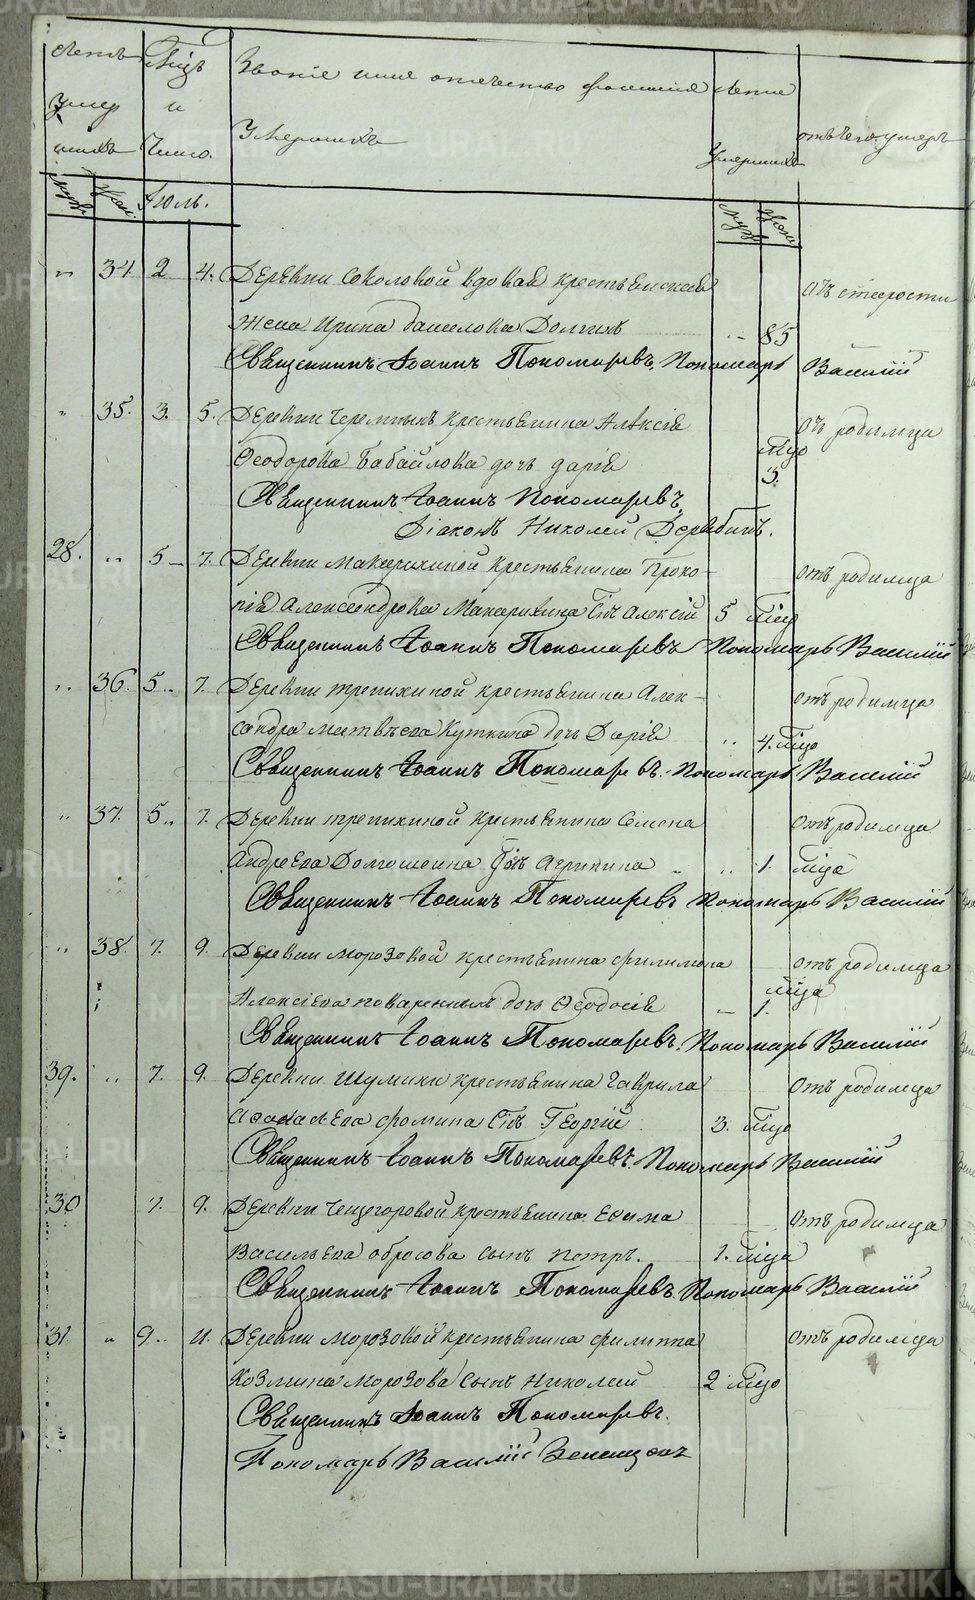 METRIKI.GASO-URAL.RU
Счетъ умершихъ
Мѣсяцъ и Число.
Званіе имя отчество фамилія Умершихъ
Лета Умершихъ
отъ чего умеръ
муж. жен. Іюль. муж. жен.
" 34 2 4. Деревни Соколовой вдовая крестьянская отъ старости
жена Ирина Данилова Долгихъ " 85
Священникъ Іоаннъ Пономаревъ. Пономарь Василій
" 35. 3. 5. Деревни Черемныхъ крестьянина Алексія отъ родимца
Ѳеодорова Бабайлова дочь Дарія мцо 3.
Священникъ Іоаннъ Пономаревъ,
Діаконъ Николай Дерябинъ.
28. " 5 7. Деревни Макарихиной крестьянина Проко- отъ родимца
пія Александрова Макарихина Сынъ Алексій 5 мцо
Священникъ Іоаннъ Пономаревъ Пономарь Василій
" 36. 5 " 7. Деревни трепихиной крестьянина Алек- отъ родимца
сандра матвѣева Куткина дочь Дарія " 4. мцо
Священникъ Іоаннъ Пономаревъ. Пономарь Василій
" 37. 5 " 7. Деревни трепихиной крестьянина Семена отъ родимца
Андреева Долгошеина дочь " 1. мца
Священникъ Іоаннъ Пономаревъ Пономарь Василій
" 38. 7. 9. Деревни морозовой крестьянина филимона отъ родимца
Алексіева поваренныхъ дочь Ѳеодосія – 1. мца
Священникъ Іоаннъ Пономаревъ. Пономарь Василій
39. " 7. 9. Деревни Шумихи крестьянина Гаврила отъ родимца
фомина Сынъ Георгій 3. мцо
Священникъ Іоаннъ Пономаревъ. Пономарь Василій
30 7. 9. Деревни Чещегоровой крестьянина Ефима отъ родимца
Васильева обросова сынъ петръ. 1. мца
Священникъ Іоаннъ Пономаревъ. Пономарь Василій
31. " 9 " 11. Деревни морозовой крестьянина филиппа отъ родимца
Козмина морозова сынъ Николай 2 мцо
Священникъ Іоаннъ Пономаревъ.
Пономарь Василій